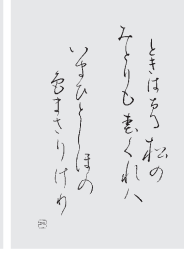 ときはなる 松の
みとりも 春くれハ
いまひとしほの
色まさりけり